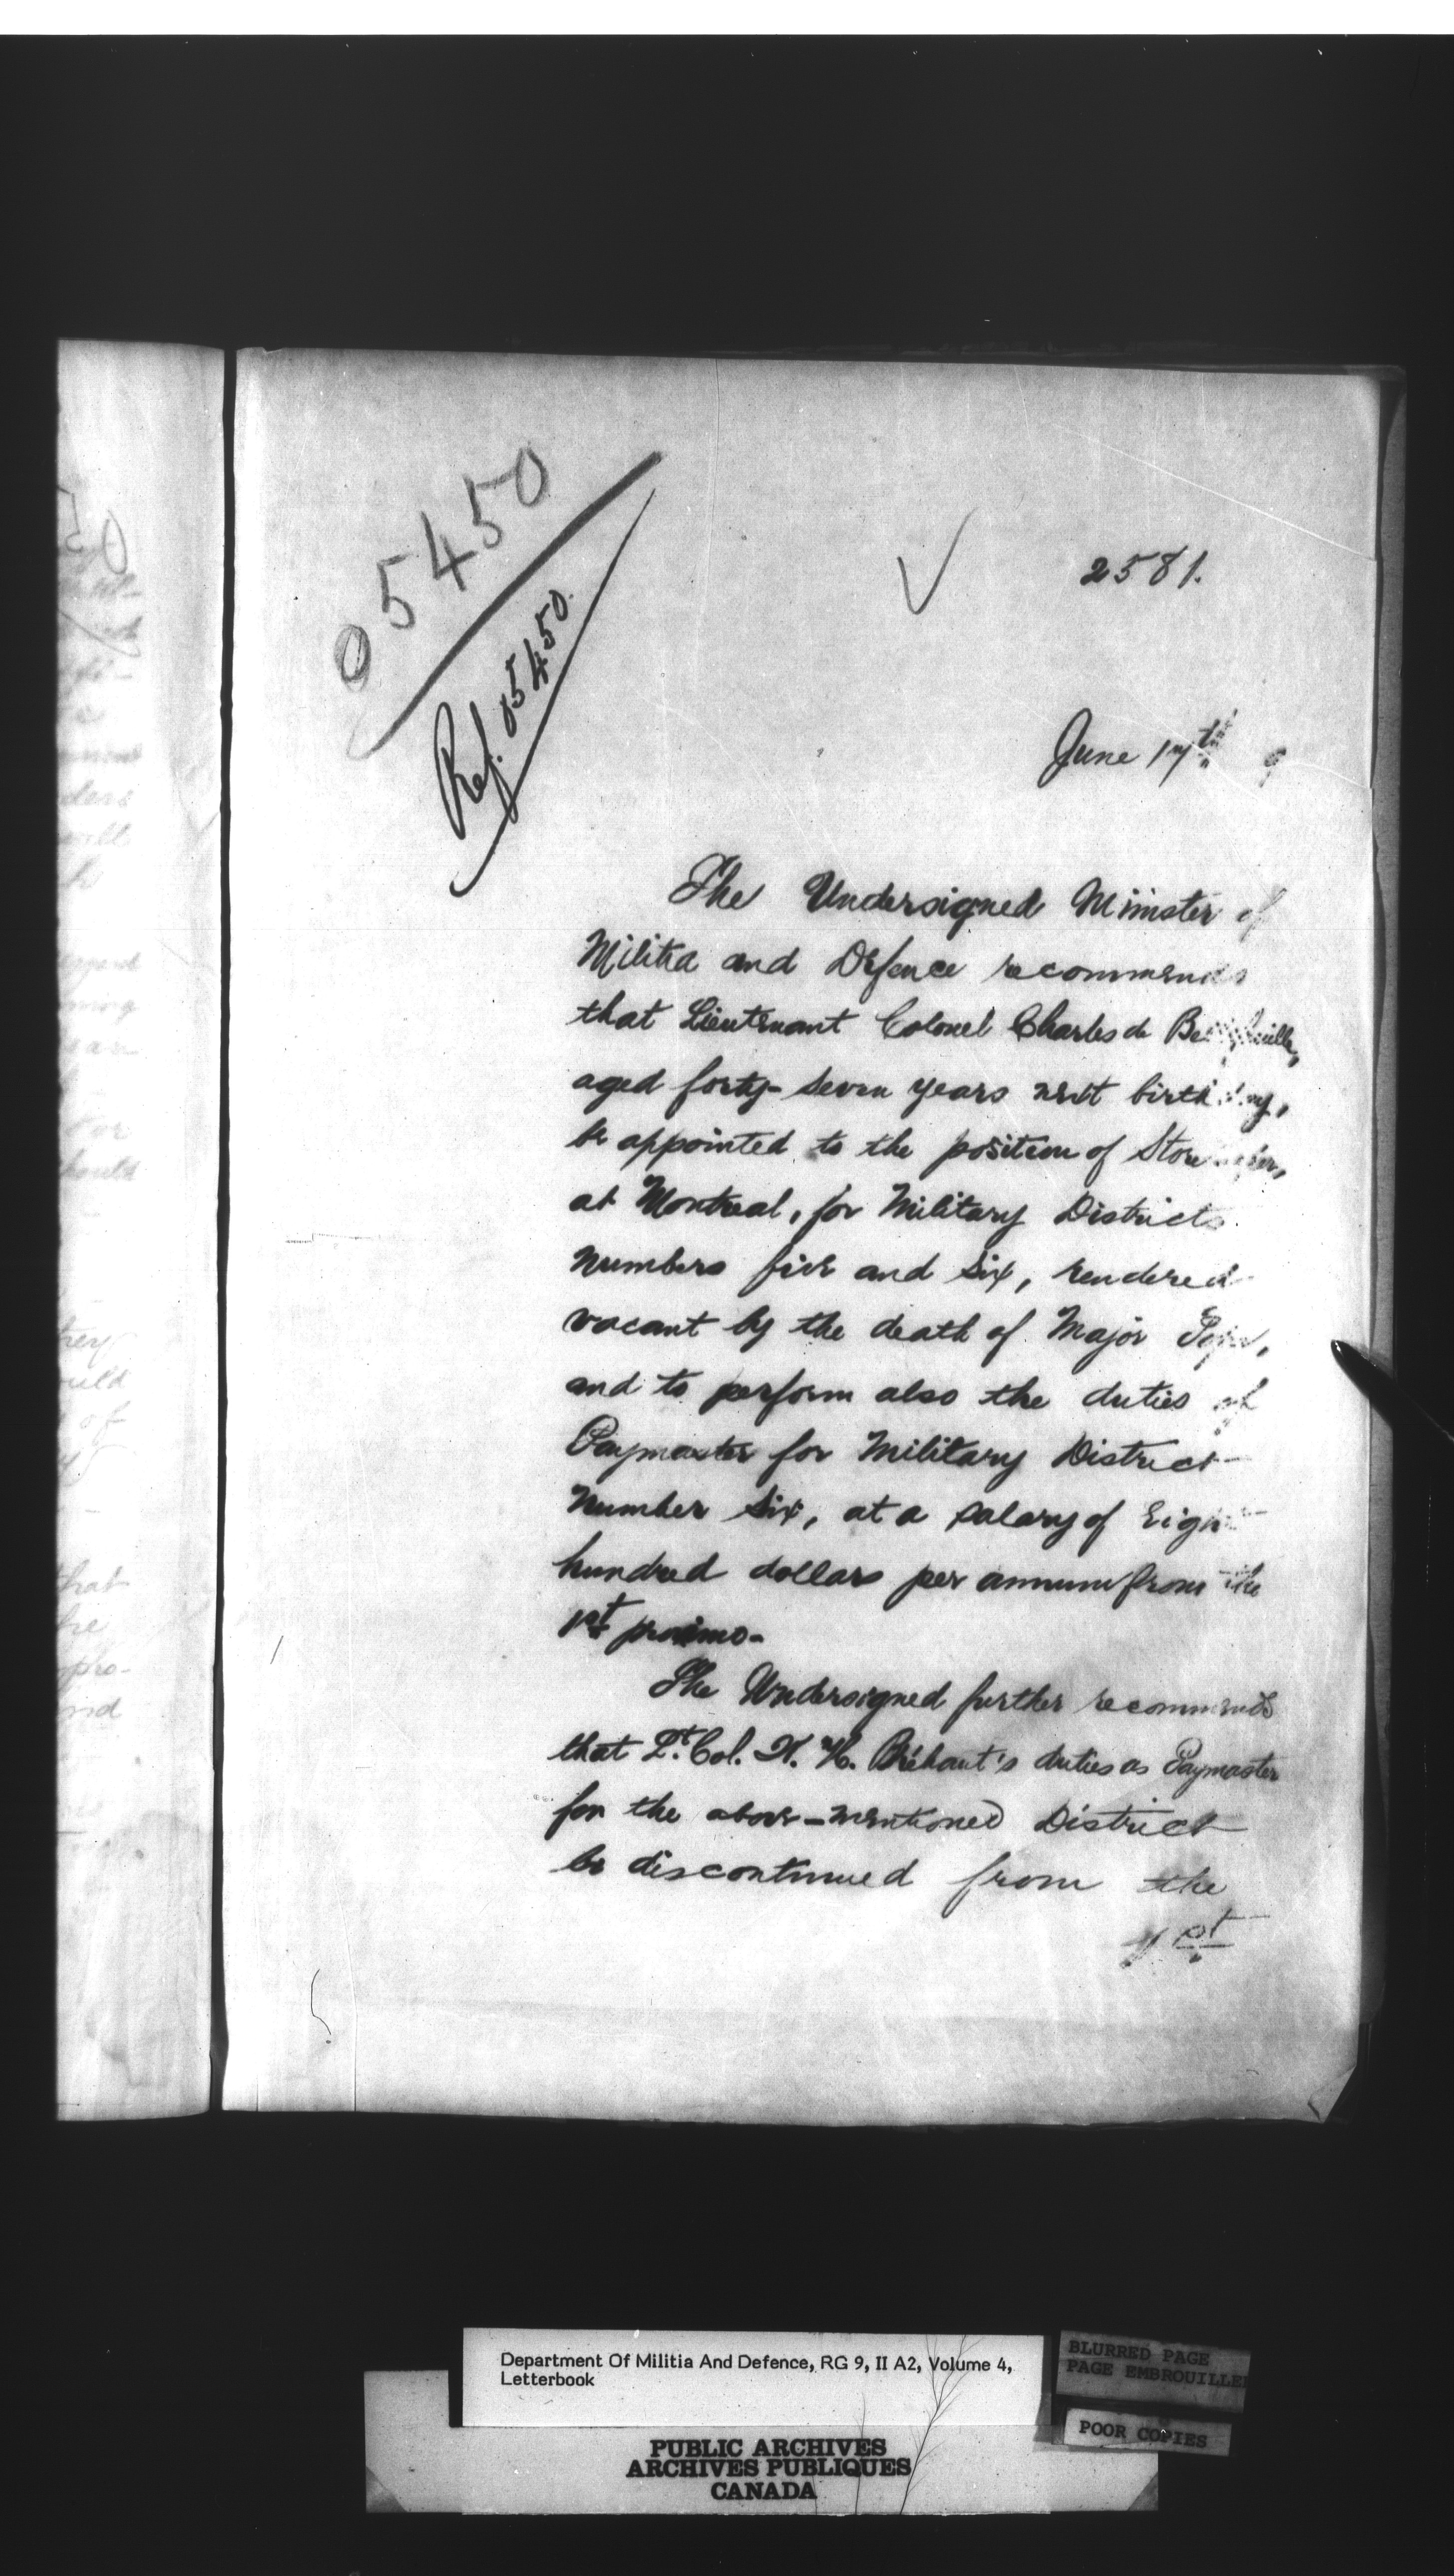 05450
Ref. 05450.
2581.
June 17th 9
The Undersigned Minister of
Militia and Defence recommends
that Lieutenant Colonel Charles de
aged forty-seven years next birthday,
be appointed to the position of Storekeeper,
at Montreal, for Military Districts
numbers five and six, rendered
vacant by the death of Major
and to perform also the duties of
Paymaster for Military District
number six, at a salary of Eight
hundred dollars per annum from the
1st proximo-
The Undersigned further recommends
that Lt. Col. H. Bréhaut's duties as Paymaster
for the above-mentioned District
be discontinued from the
1st
Department Of Militia And Defence, RG 9, II A2, Volume 4,
Letterbook
BLURRED PAGE
PAGE EMBROUILLEE
POOR COPIES
PUBLIC ARCHIVES
ARCHIVES PUBLIQUES
CANADA